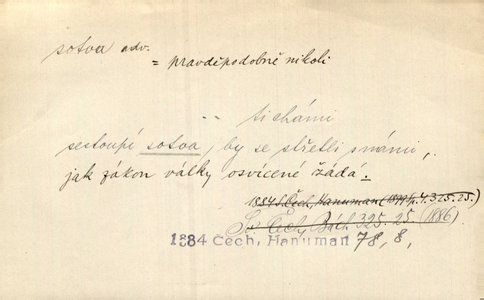 sotva adv.
= pravděpodobně nikoli
ti chámi
sestoupí sotva, by se střetli s námi,
jak zákon války osvícené žádá.
1884 Čech, Hanuman 325. 25.
Sv. Čech, Bách. 325. 25. (1886)
1884 Čech, Hanuman 78, 8,